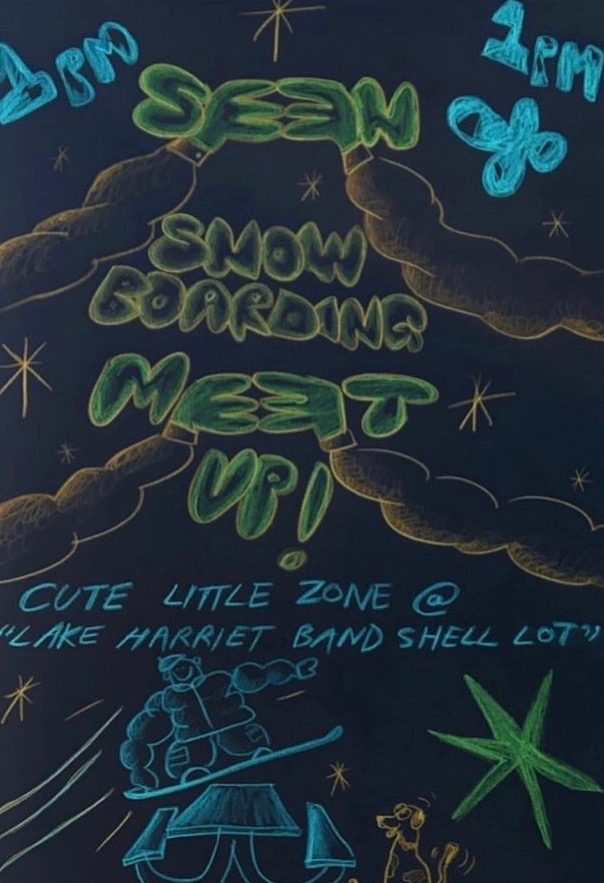 1PM
1PM
SEEN
SNOW
BOARDING
MEET
UP!
CUTE LITTLE ZONE @
"LAKE HARRIET BAND SHELL LOT"